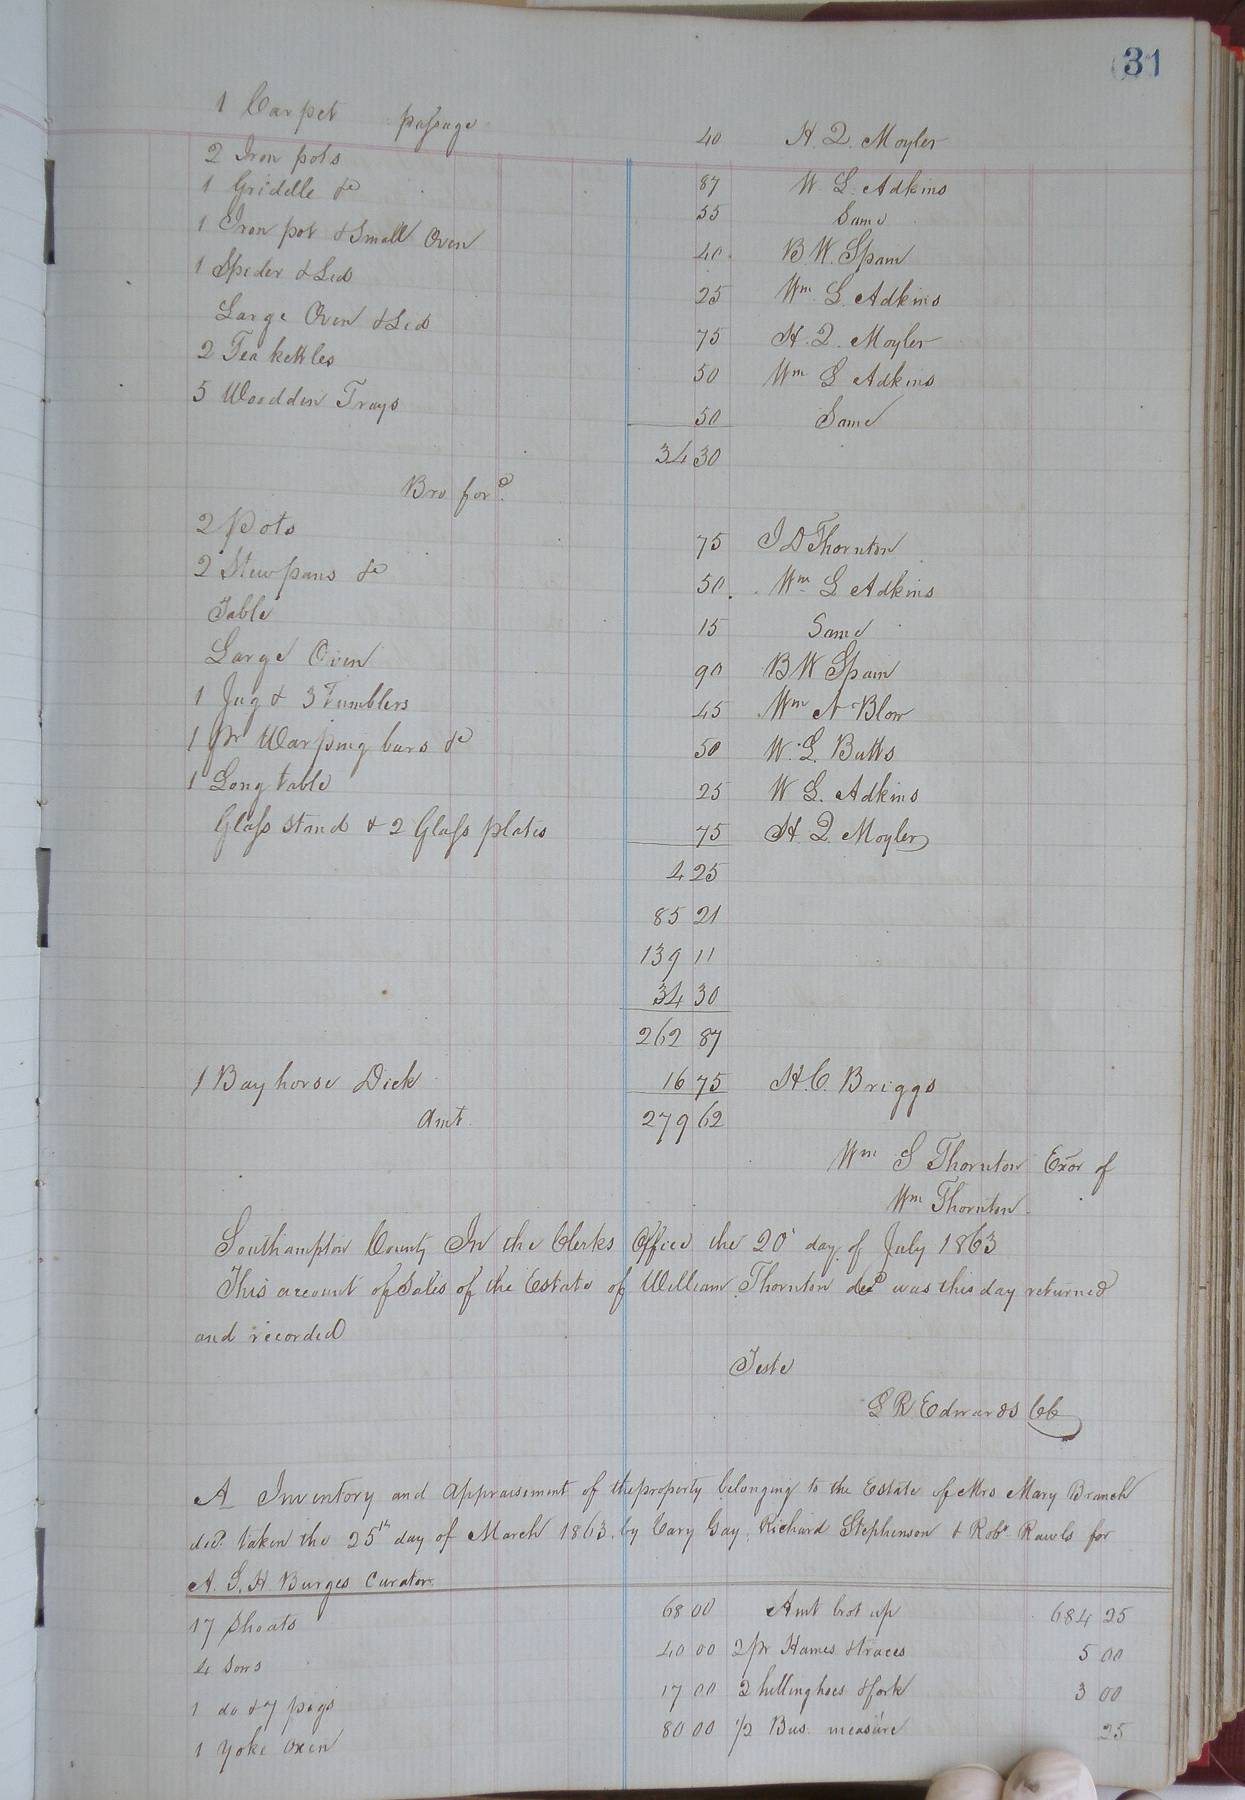 31
1 Carpet passage 40 H. Q. Moyler
2 Iron pots 87 W. L. Adkins
1 Griddle &c 55 Same
1 Iron pot & Small Oven 40 B W. Spain
1 Spider & Lid 25 Wm L Adkins
Large Oven & Lid 75 H. Q. Moyler
2 Tea kettles 50 Wm L Adkins
5 Woodden Trays 50 Same
34 30
Bro ford
2 Pots 75 J D Thornton
2 Stew pans &c 50 Wm L Adkins
Table 15 Same
Large Oven 90 B W Spain
1 Jug & 3 Tumblers 45 Wm N Blow
1 pr Warping bars &c 50 W. L. Butts
1 Long table 25 W L. Adkins
Glass stand & 2 Glass plates 75 H. Q. Moyler
4 25
85 21
139 11
34 30
262 87
1 Bay horse Dick 16 75 H. C. Briggs
Amt 279 62
Wm S Thornton Exor of
Wm Thornton
Southampton County In the Clerks Office the 20 day of July 1863
This account of Sales of the Estate of William Thornton decd was this day returned
and recorded
Teste
L R Edwards CC
A Inventory and appraisement of the property belonging to the Estate of Mrs Mary Branch
decd. taken the 25th day of March 1863. by Cary Gay, Richard Stephenson & Robt Rawls for
A. S. H. Burges Curator
17 Shoats 68 00 Amt brot up 684 25
4 Sows 40 00 2 pr Hames & traces 5 00
1 do & 7 pigs 17 00 2 hilling hoes & fork 3 00
1 Yoke Oxen 80 00 1/2 Bus. measure 25